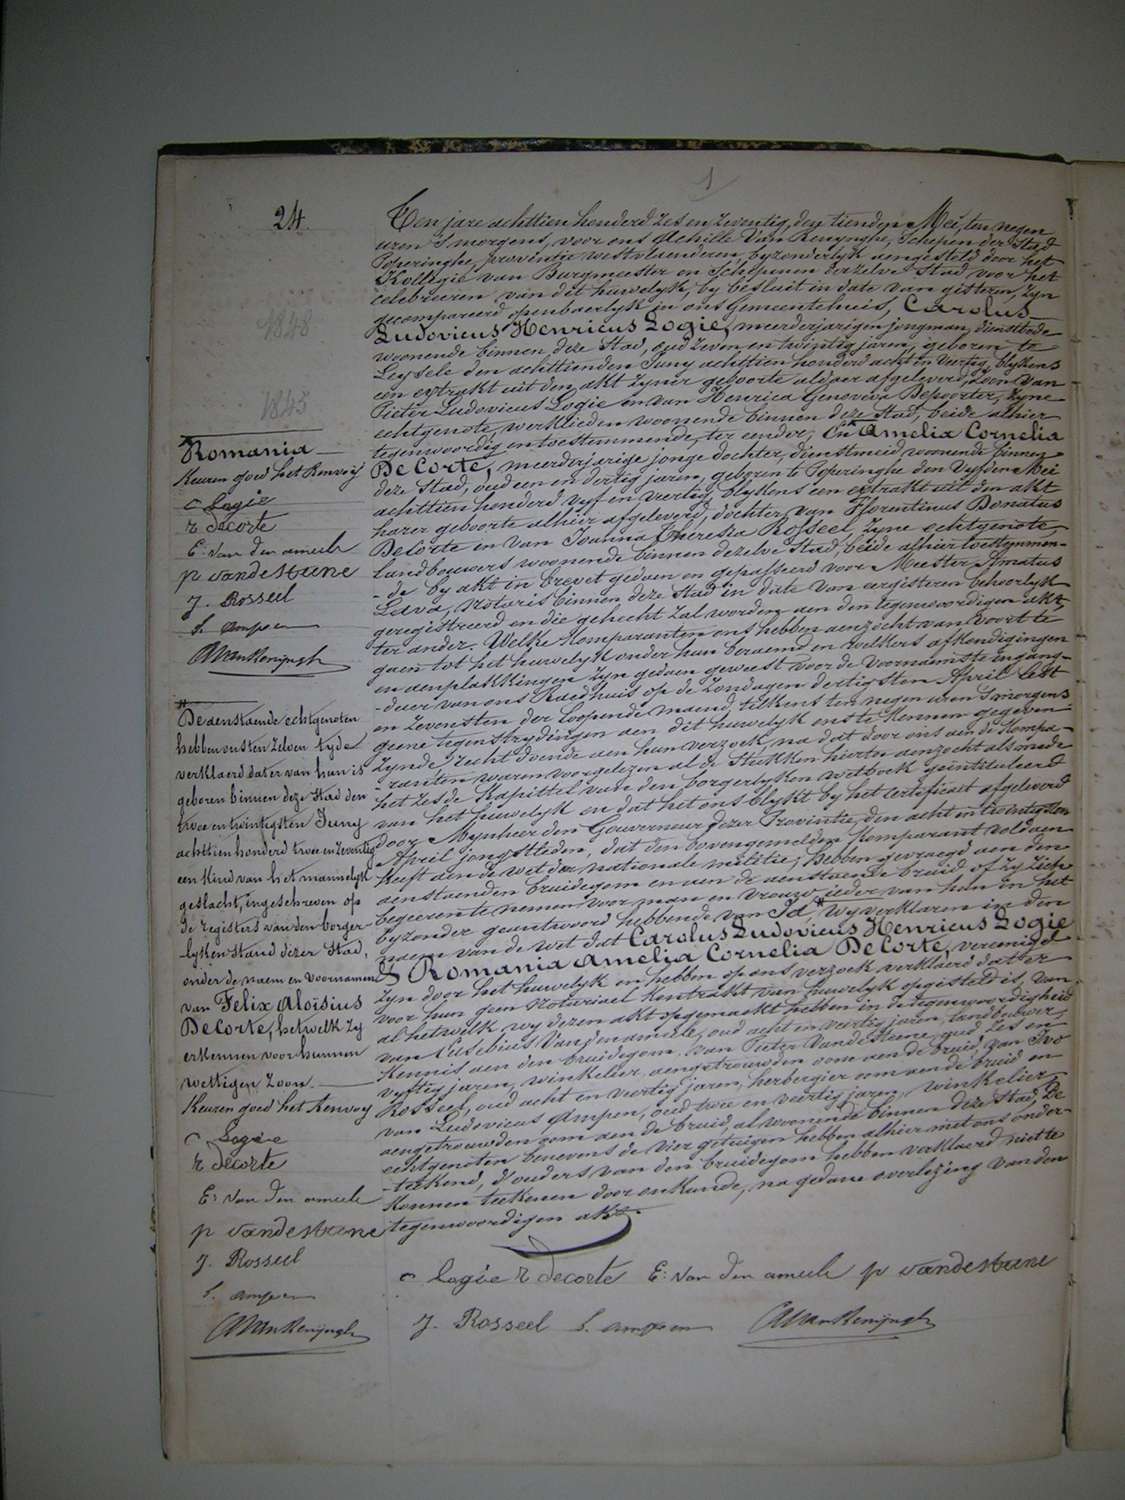 1
24.
Ten jare achttien honderd zes en zeventig, den tienden Mei, ten negen
uren 's morgens, voor ons Achille Van Renynghe, Schepen der Stad
Poperinghe, provintie westvlaenderen, byzonderlyk aengesteld door het
Kollegie van Burgmeester en Schepenen derzelve Stad voor het
celebreeren van dit huwelyk, by besluit in date van gisteren, zyn
gecompareerd openbaerlyk in ons Gemeentehuis, Carolus
Ludovicus Henricus Logie, meerderjarigen jongman, dienstbode
woonende binnen deze Stad, oud zeven en twintig jaren, geboren te
Leysele den achttienden Juny achttien honderd acht en veertig, blykens
een extrakt uit den akt zyner geboorte aldaer afgeleverd, zoon van
Pieter Ludovicus Logie en van Henrica Genoveva Depoorter, zyne
echtgenote, werklieden woonende binnen deze Stad, beide alhier
tegenwoordig en toestemmende, ter eender; En * Amelia Cornelia
DeCorte, meerderjarige jonge dochter, dienstmeid woonende binnen
deze Stad, oud een en dertig jaren, geboren te Poperinghe den vyfden Mei
achttien honderd vyf en veertig, blykens een extrakt uit den akt
harer geboorte alhier afgeleverd, dochter van Florentinus Donatus
DeCorte en van Joanna Theresia Rosseel, zyne echtgenote
landbouwers woonende binnen dezelve Stad, beide alhier toestemmen-
-de by akt in brevet gedaen en gepasseerd voor Meester Amatus
Lava, Notaris binnen deze Stad in date van eergisteren behoorlyk
geregistreerd en die gehecht zal worden aen den tegenwoordigen akt,
ter ander. Welke Komparanten ons hebben aenzocht van voort te
gaen tot het huwelyk onder hun beraemd en welkers afkondigingen
en aenplakkingen zyn gedaen geweest voor de voornaemste ingang-
-deur van ons Raedhuis op de Zondagen dertigsten April lest
en zevensten der loopende maend, telkens ten negen uren s'morgens
geene tegenstrydingen aen dit huwelyk ons te kennen gegeven
zynde; recht doende aen hun verzoek, na dat door ons aen de Kompa-
-ranten waren voorgelezen al de Stukken hierin aenzocht alsmede
het zesde Kapittel van den borgerlyken wetboek geïntituleerd
van het huwelyk en dat het ons blykt by het certificaet afgeleverd
door Mynheer den Gouverneur dezer Provintie, den acht en twintigsten
April jongstleden, dat den bovengemelden Komparant voldaen
heeft aen de wet der nationale militie; hebben gevraegd aen den
aenstaenden bruidegom en aen de aenstaende bruid of zy zich
begeeren te nemen voor man en vrouw, ieder van hun in het
byzonder geantwoord hebbende van Ja,* wy verklaren in den
naem van de wet dat Carolus Ludovicus Henricus Logie
& Romania Amelia Cornelia DeCorte, vereenigd
zyn door het huwelyk en hebben op ons verzoek verklaerd dat er
voor hun geen Notariael Kontrakt van huwelyk opgesteld is, van
al hetwelk wy dezen akt opgemaekt hebben in de tegenwoordigheid
van Eusebius Vandenameele, oud acht en veertig jaren, landbouwer,
Kennis aen den bruidegom, van Pieter VandeSteene, oud zes en
vyftig jaren, winkelier, aengetrouwden oom aen de bruid, van Ivo
Rosseel, oud acht en veertig jaren, herbergier oom aen de bruid en
van Ludovicus Ampen, oud twee en veertig jaren, winkelier,
aengetrouwden oom aen de bruid, al woonende binnen deze Stad, De
echtgenoten benevens de vier getuigen hebben alhier met ons onder-
-teekend, d'ouders van den bruidegom hebben verklaerd niet te
Konnen teekenen door onkunde, na gedane overlezing van den
tegenwoordigen akt.
c Logie r decorte E: Van Den ameele p vandesteene
J. Rosseel L. ampen AVanRenijnghe
1848
1845
Romania
Keuren goed het Renvoij
c Logie
r decorte
E: Van Den ameele
p vandesteene
J. Rosseel
L. ampen
AVanRenijnghe
*
De aenstaende echtgenoten
hebben ons ten zelven tyde
verklaerd dat er van hun is
geboren binnen deze Stad den
twee en twintigsten Juny
achttien honderd twee en zeventig
een kind van het mannelyk
geslacht, ingeschreven op
de registers van den borger-
-lyken stand dezer Stad,
onder de naem en voornamen
van Felix Aloïsius
DeCorte, hetwelk zy
erkennen voor hunnen
wettigen zoon.
Keuren goed het Renvoy
c Logie
r decorte
E: Van Den ameele
p vandesteene
J. Rosseel
L. ampen
AVanRenijnghe